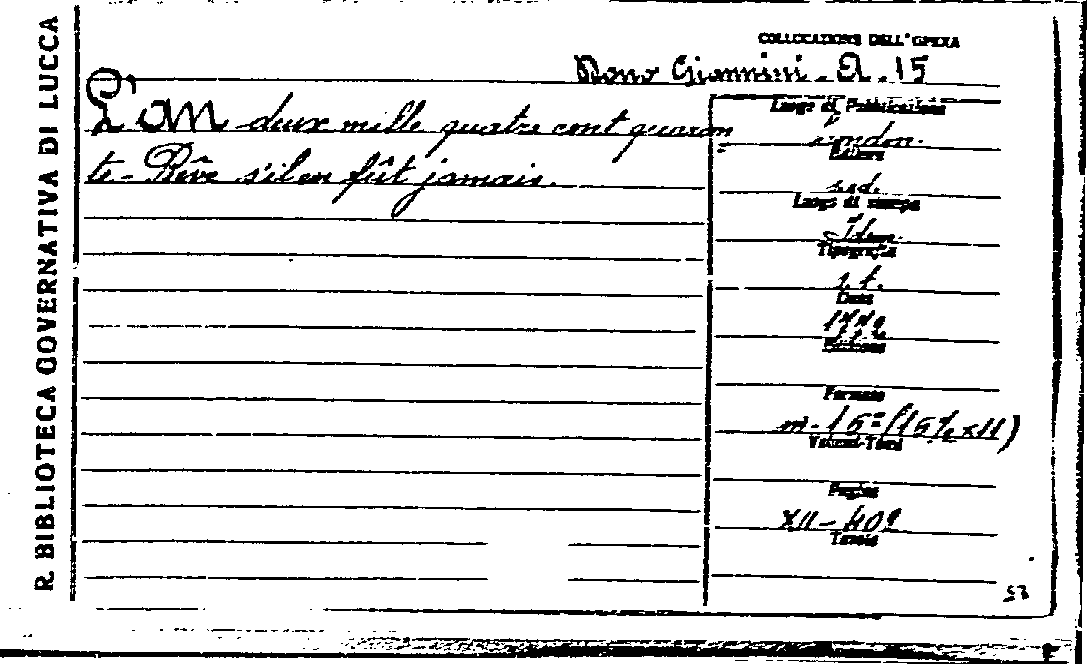 R. BIBLIOTECA GOVERNATIVA DI LUCCA
COLLOCAZIONE DELL'OPERA
Dono Giannini. A. 15
L'An deux mille quatre cent quaran
te - Rêve s'il en fût jamais.
Luogo di Pubblicazione
London.
Editore
s. ed.
Luogo di stampa
Idem.
Tipografia
s. t.
Data
Edizione
Formato
Volumi-Tomi
Pagine
XII - 402
Tavole